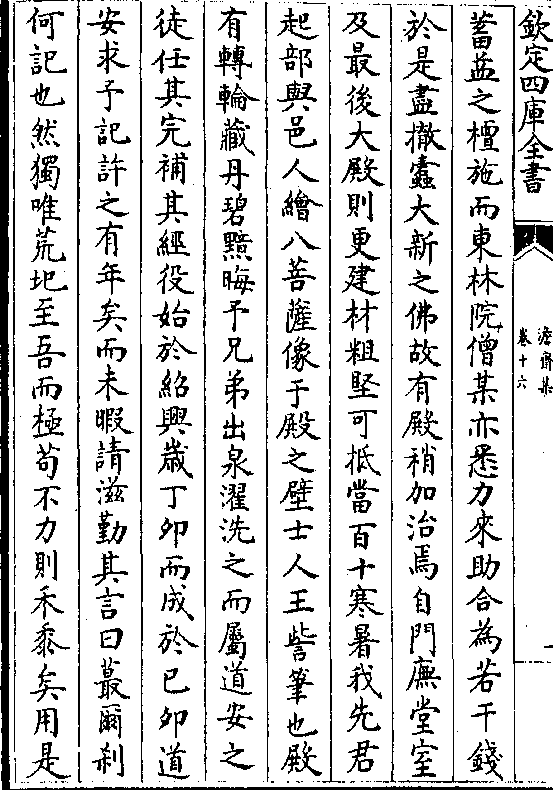 欽定四庫全書
澹齋集
卷十六
蓄益之檀施而東林院僧某亦悉力來助合為若干錢
於是盡撤蠧大新之佛故有殿稍加治焉自門廡堂室
及最後大殿則更建材粗堅可抵當百十寒暑我先君
起部與邑人繪八菩薩像于殿之壁士人王訾筆也殿
有轉輪藏丹碧黯晦予兄弟出泉濯洗之而屬道安之
徒任其完補其經役始於紹興歳丁卯而成於已卯道
安求予記許之有年矣而未暇請滋勤其言曰蕞爾刹
何記也然獨唯荒圯至吾而極苟不力則禾黍矣用是